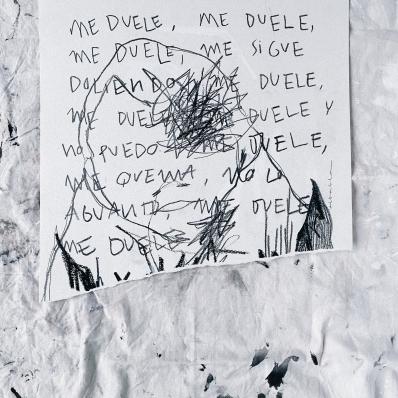 ME DUELE, ME DUELE,
ME DUELE, ME SIGUE
DOLIENDO, ME DUELE,
ME DUELE ME DUELE Y
NO PUEDO ME DUELE,
ME QUEMA, NO LO
AGUANTO, ME DUELE
ME DUELE